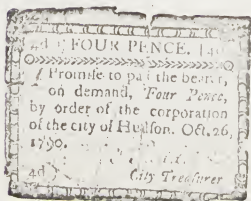 4d FOUR PENCE. [4d
I Promiſe to paſ the bearer,
on demand, Four Pence,
by order of the corporation
of the city of Hudſon. Oct. 26,
1790.
4d City Treaſurer